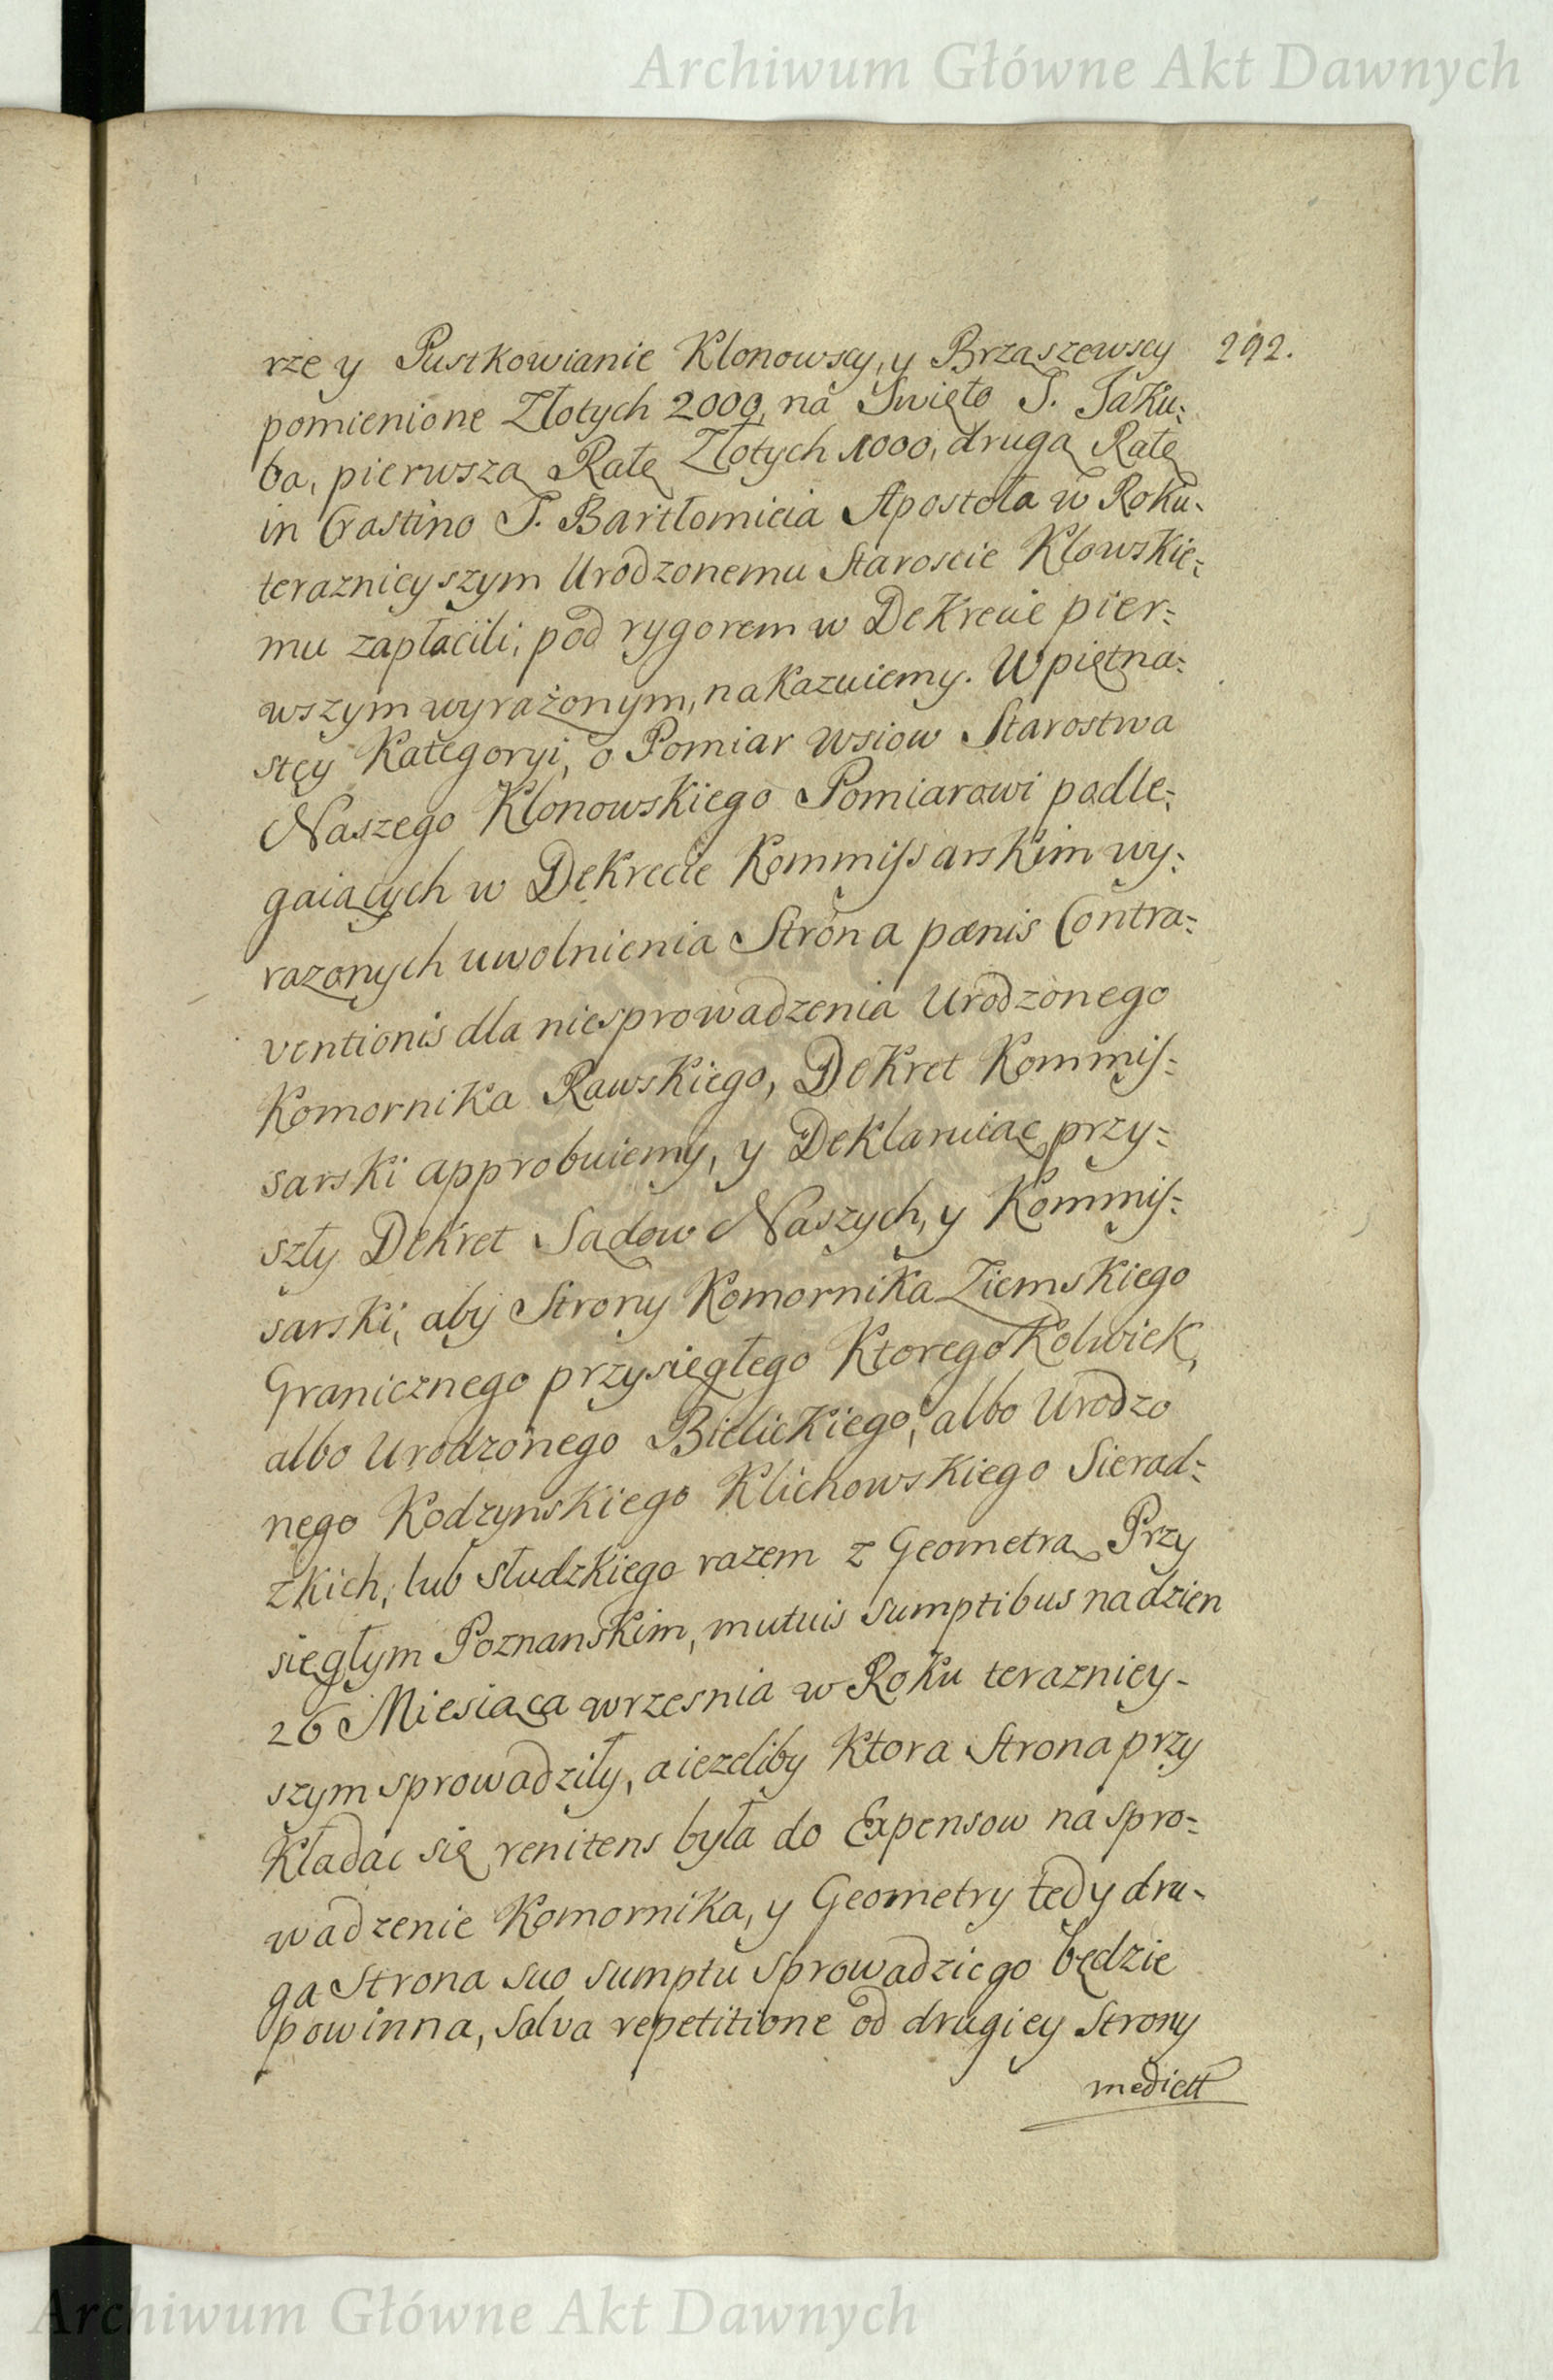 Archiwum Główne Akt Dawnych
rze y Pustkowianie Klonowscy, y Brzaszewscy 292.
pomienione Złotych 2000, na Swięto S. Jaku⹀
ba, pierwszą Ratę Złotych 1000, drugą Ratę
in Crastino S. Bartłomieia Apostoła w Roku⹀
teraznieyszym Urodzonemu Staroscie Klowskie⹀
mu zapłacili, pod rygorem w Dekrecie pier⹀
wszym wyrażonym, nakazuiemy. W piętna⹀
stey Kategoryi, o Pomiar wsiow Starostwa
Naszego Klonowskiego Pomiarowi podle⹀
gaiących w Dekrecie Kommissarskim wy⹀
razonych uwolnienia Stron a pænis Contra⹀
ventionis dla niesprowadzenia Urodzonego
Komornika Rawskiego, Dekret Kommis⹀
sarski approbuiemy, y Deklaruiąc przy⹀
szły Dekret Sądow Naszych, y Kommis⹀
sarski, aby Strony Komornika Ziemskiego
Granicznego przysięgłego Ktoregokolwiek,
albo Urodzonego Bielickiego, albo Urodzo
nego Kodzynskiego Klichowskiego Sierad⹀
zkich, lub Słudzkiego razem z Geometrą Przy
sięgłym Poznanskim, mutuis sumptibus na dzien
26 Miesiąca wrzesnia w Roku terazniey-
szym sprowadziły, a iezeliby Ktora Strona przy
Kładac się renitens była do Expensow na spro⹀
wadzenie Komornika, y Geometry tedy dru-
ga Strona suo sumptu sprowadzic go będzie
powinna, salva repetitione od drugiey Strony
mediett
Archiwum Główne Akt Dawnych